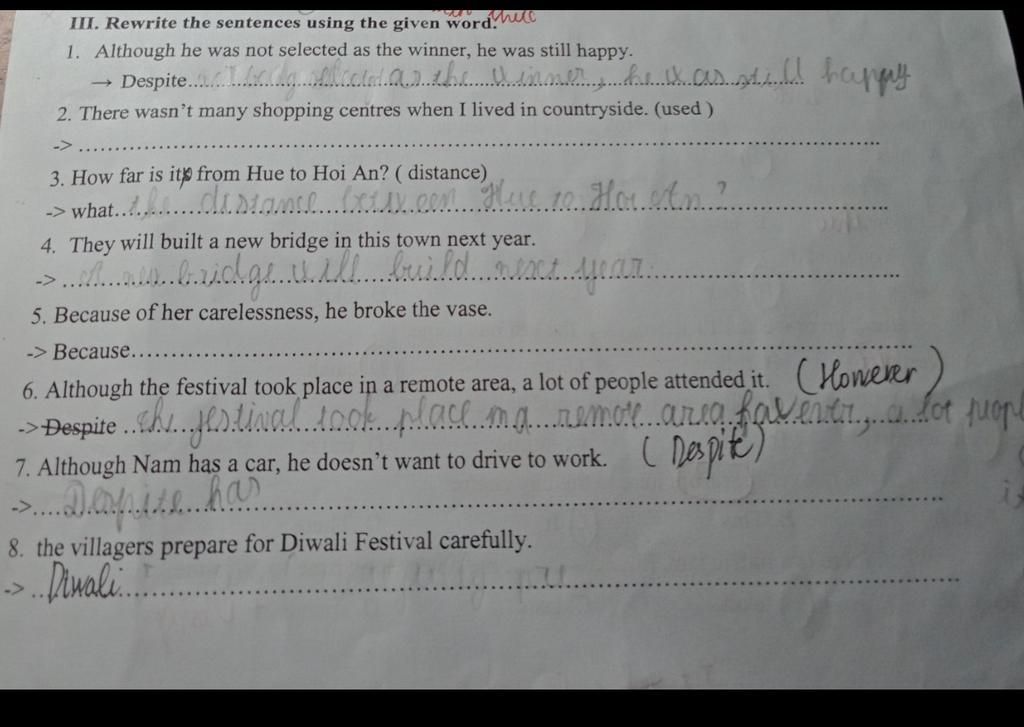 then thuc
III. Rewrite the sentences using the given word.
1. Although he was not selected as the winner, he was still happy.
→ Despite.....not being as the winner, he was still happy
2. There wasn't many shopping centres when I lived in countryside. (used )
-> ................................................................
3. How far is it from Hue to Hoi An? ( distance)
-> what...the distance between Hue to Hoi An ?
4. They will built a new bridge in this town next year.
-> ...A new bridge will build next year.
5. Because of her carelessness, he broke the vase.
-> Because................................................................
6. Although the festival took place in a remote area, a lot of people attended it. (However)
-> Despite ..the festival took place in a remote area, however, a lot peopl
7. Although Nam has a car, he doesn't want to drive to work. (Despite)
->....Despite has................................................................
8. the villagers prepare for Diwali Festival carefully.
-> ..Diwali................................................................